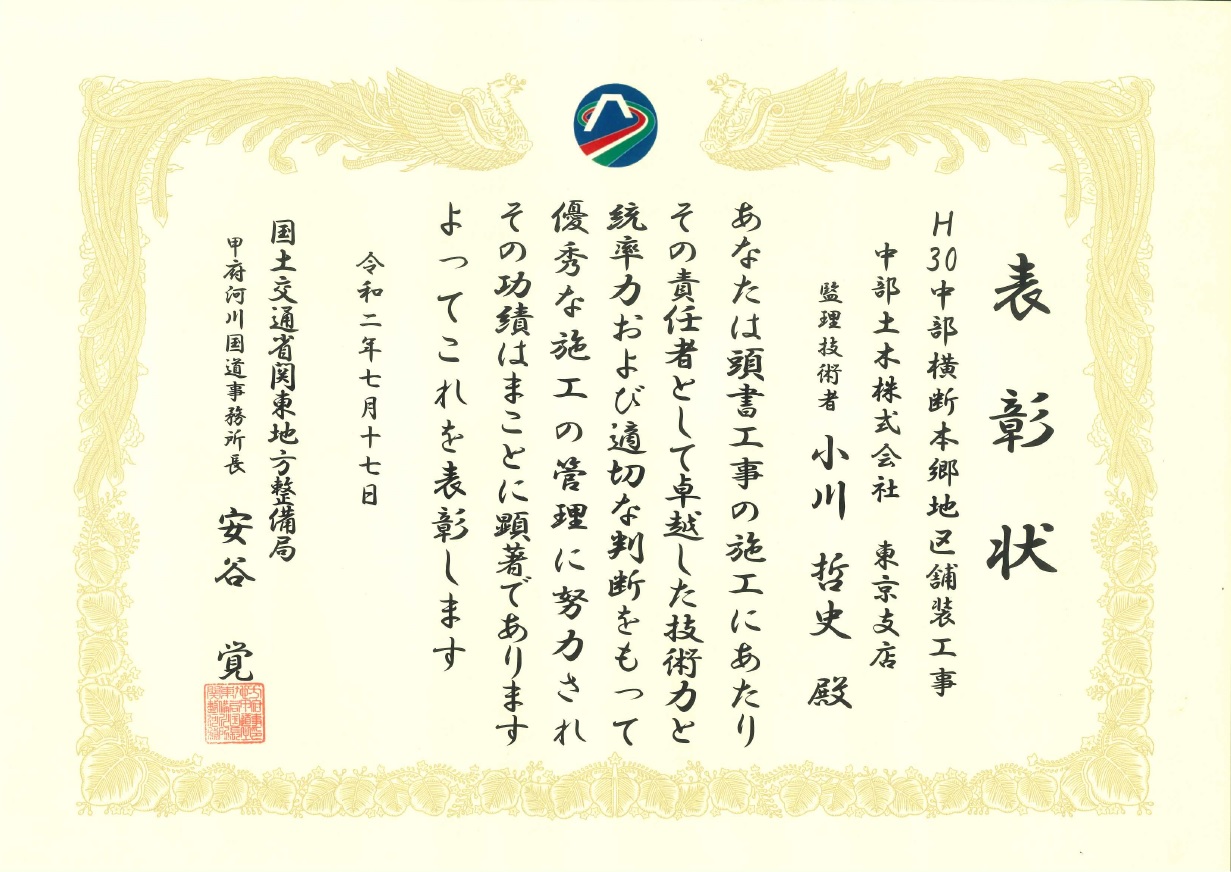 表彰状
H30中部横断本郷地区舗装工事
中部土木株式会社 東京支店
監理技術者 小川 哲史 殿
あなたは頭書工事の施工にあたり
その責任者として卓越した技術力と
統率力および適切な判断をもって
優秀な施工の管理に努力され
その功績はまことに顕著であります
よってこれを表彰します
令和二年七月十七日
国土交通省関東地方整備局
甲府河川国道事務所長 安谷 覚